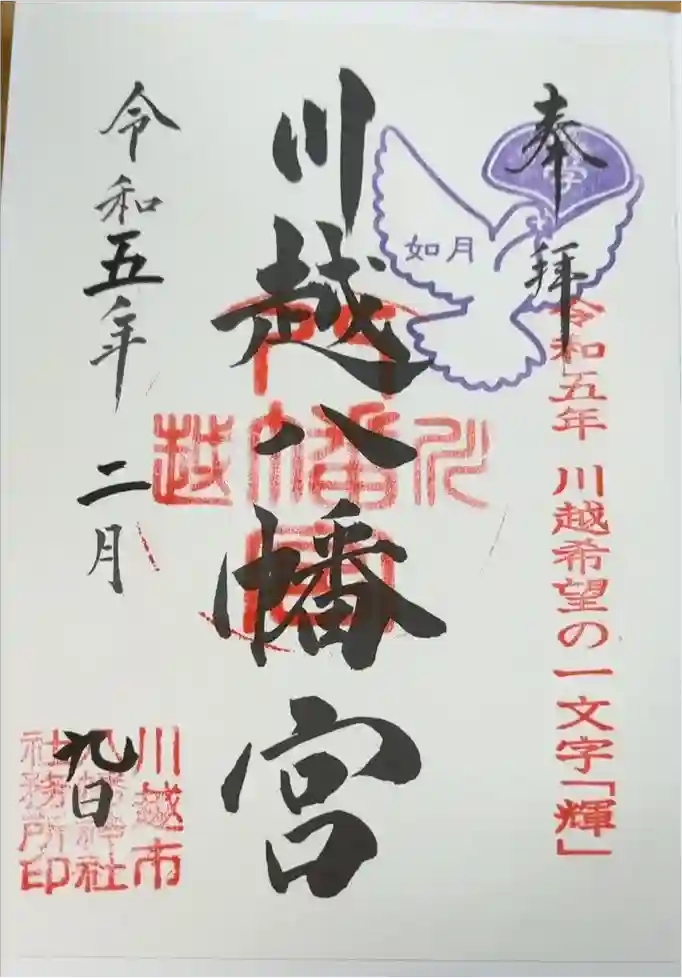 奉拝
如月
令和五年 川越希望の一文字「輝」
川越八幡宮
令和五年 二月 九日
川越市
八幡神社
社務所印